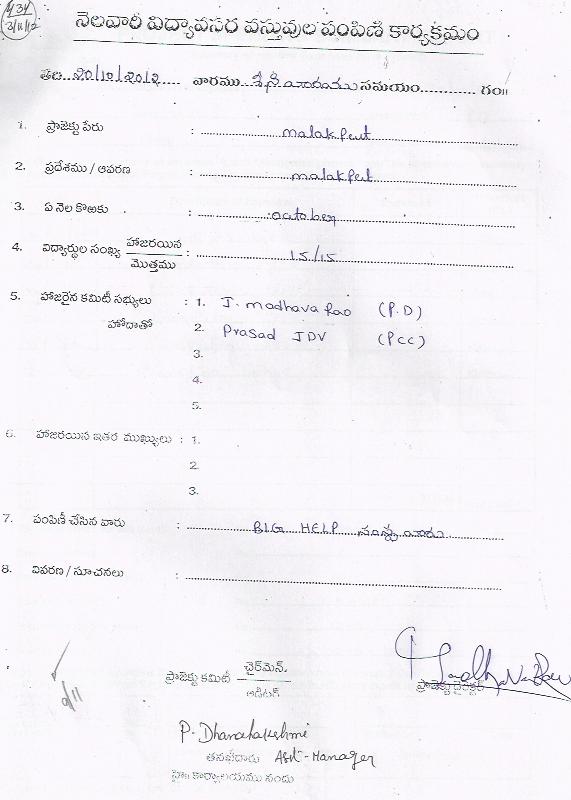 434
3/11/12
నెలవారీ విద్యావసర వస్తువుల పంపిణీ కార్యక్రమం
తేది 20/10/2012 వారము శనివారము సమయం గం॥
1. ప్రాజెక్టు పేరు : malakpeut
2. ప్రదేశము / ఆవరణ : malakpeut
3. ఏ నెల కొఱకు : october
4. విద్యార్థుల సంఖ్య హాజరయిన / మొత్తము : 15/15
5. హాజరైన కమిటీ సభ్యులు : 1. J. madhava Rao (P.D)
హోదాతో 2. Prasad JDV (PCC)
3.
4.
5.
6. హాజరయిన ఇతర ముఖ్యులు : 1.
2.
3.
7. పంపిణీ చేసిన వారు : BIG HELP సంస్థ వారు
8. వివరణ / సూచనలు :
ప్రాజెక్టు కమిటీ ఛైర్‌మెన్ / ఆడిటర్
ప్రాజెక్టు డైరెక్టర్
P. Dhanalakshmi
తనిఖీదారు Asst-Manager
హె॥ కార్యాలయము నందు